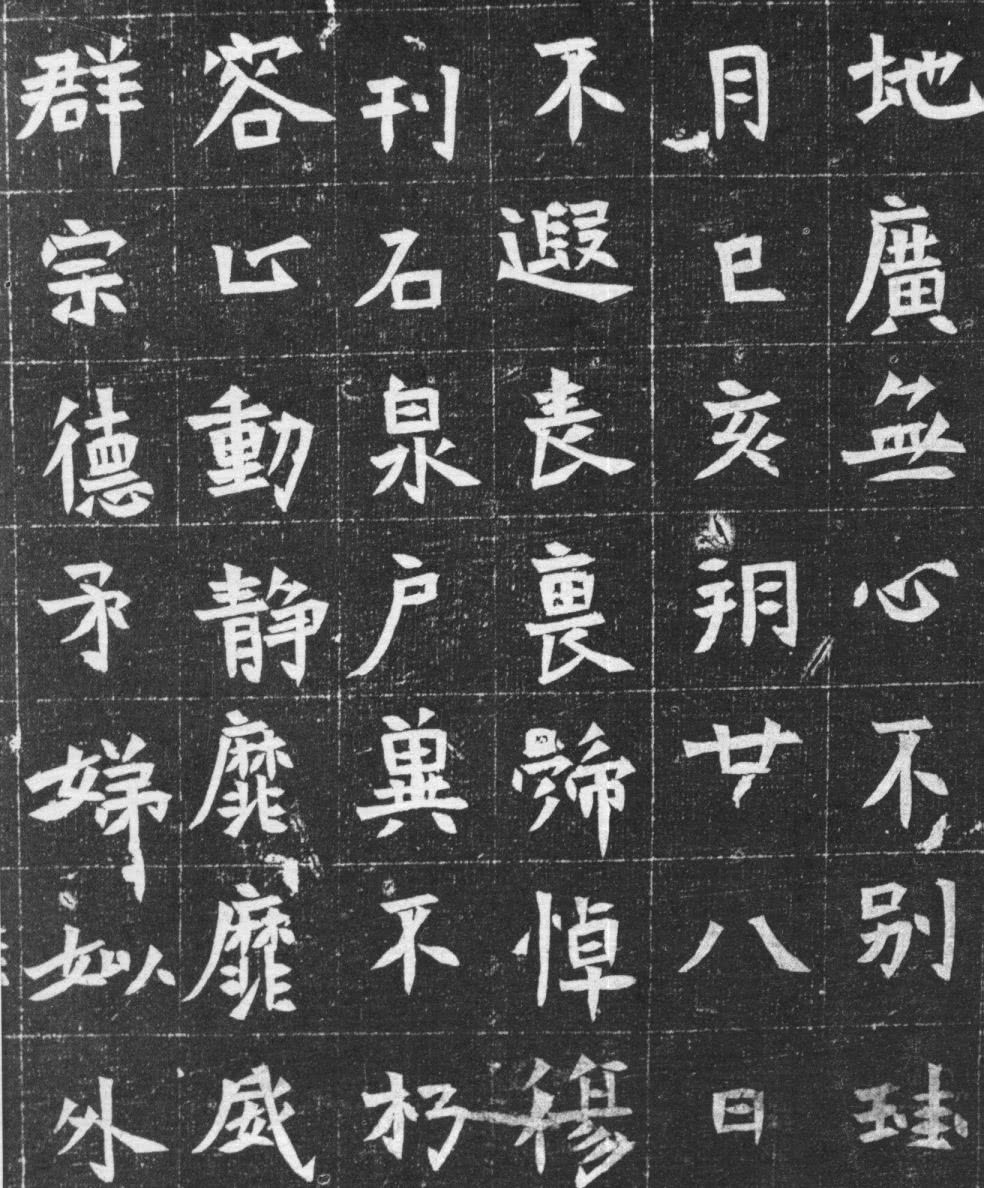 地廣無心不別珪
月巳亥朔廿八日
不遐表裏悼穆
刊石泉戶冀不朽
容止動靜靡靡威
群宗德矛娣姒外